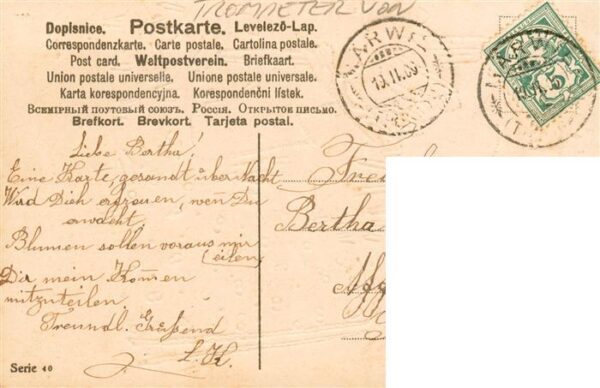 TROMPETER VON
Dopisnice. Postkarte. Levelező-Lap.
Correspondenzkarte. Carte postale. Cartolina postale.
Post card. Weltpostverein. Briefkaart.
Union postale universelle. Unione postale universale.
Karta korespondencyjna. Korespondenční lístek.
Всемірный поутовый союзъ. Россія. Открытое письмо.
Brefkort. Brevkort. Tarjeta postal.
MÄRWIL
MÄRWIL
Liebe Bertha!
Eine Karte, gesandt über Nacht
Wird Dich erfreuen, wen̄ Du
erwacht,
Blumen sollen voraus mir
(eilen)
Dir mein Kom̄en
mitzuteilen.
Freundl. Grüßend
L. K.
Bertha
Serie 40